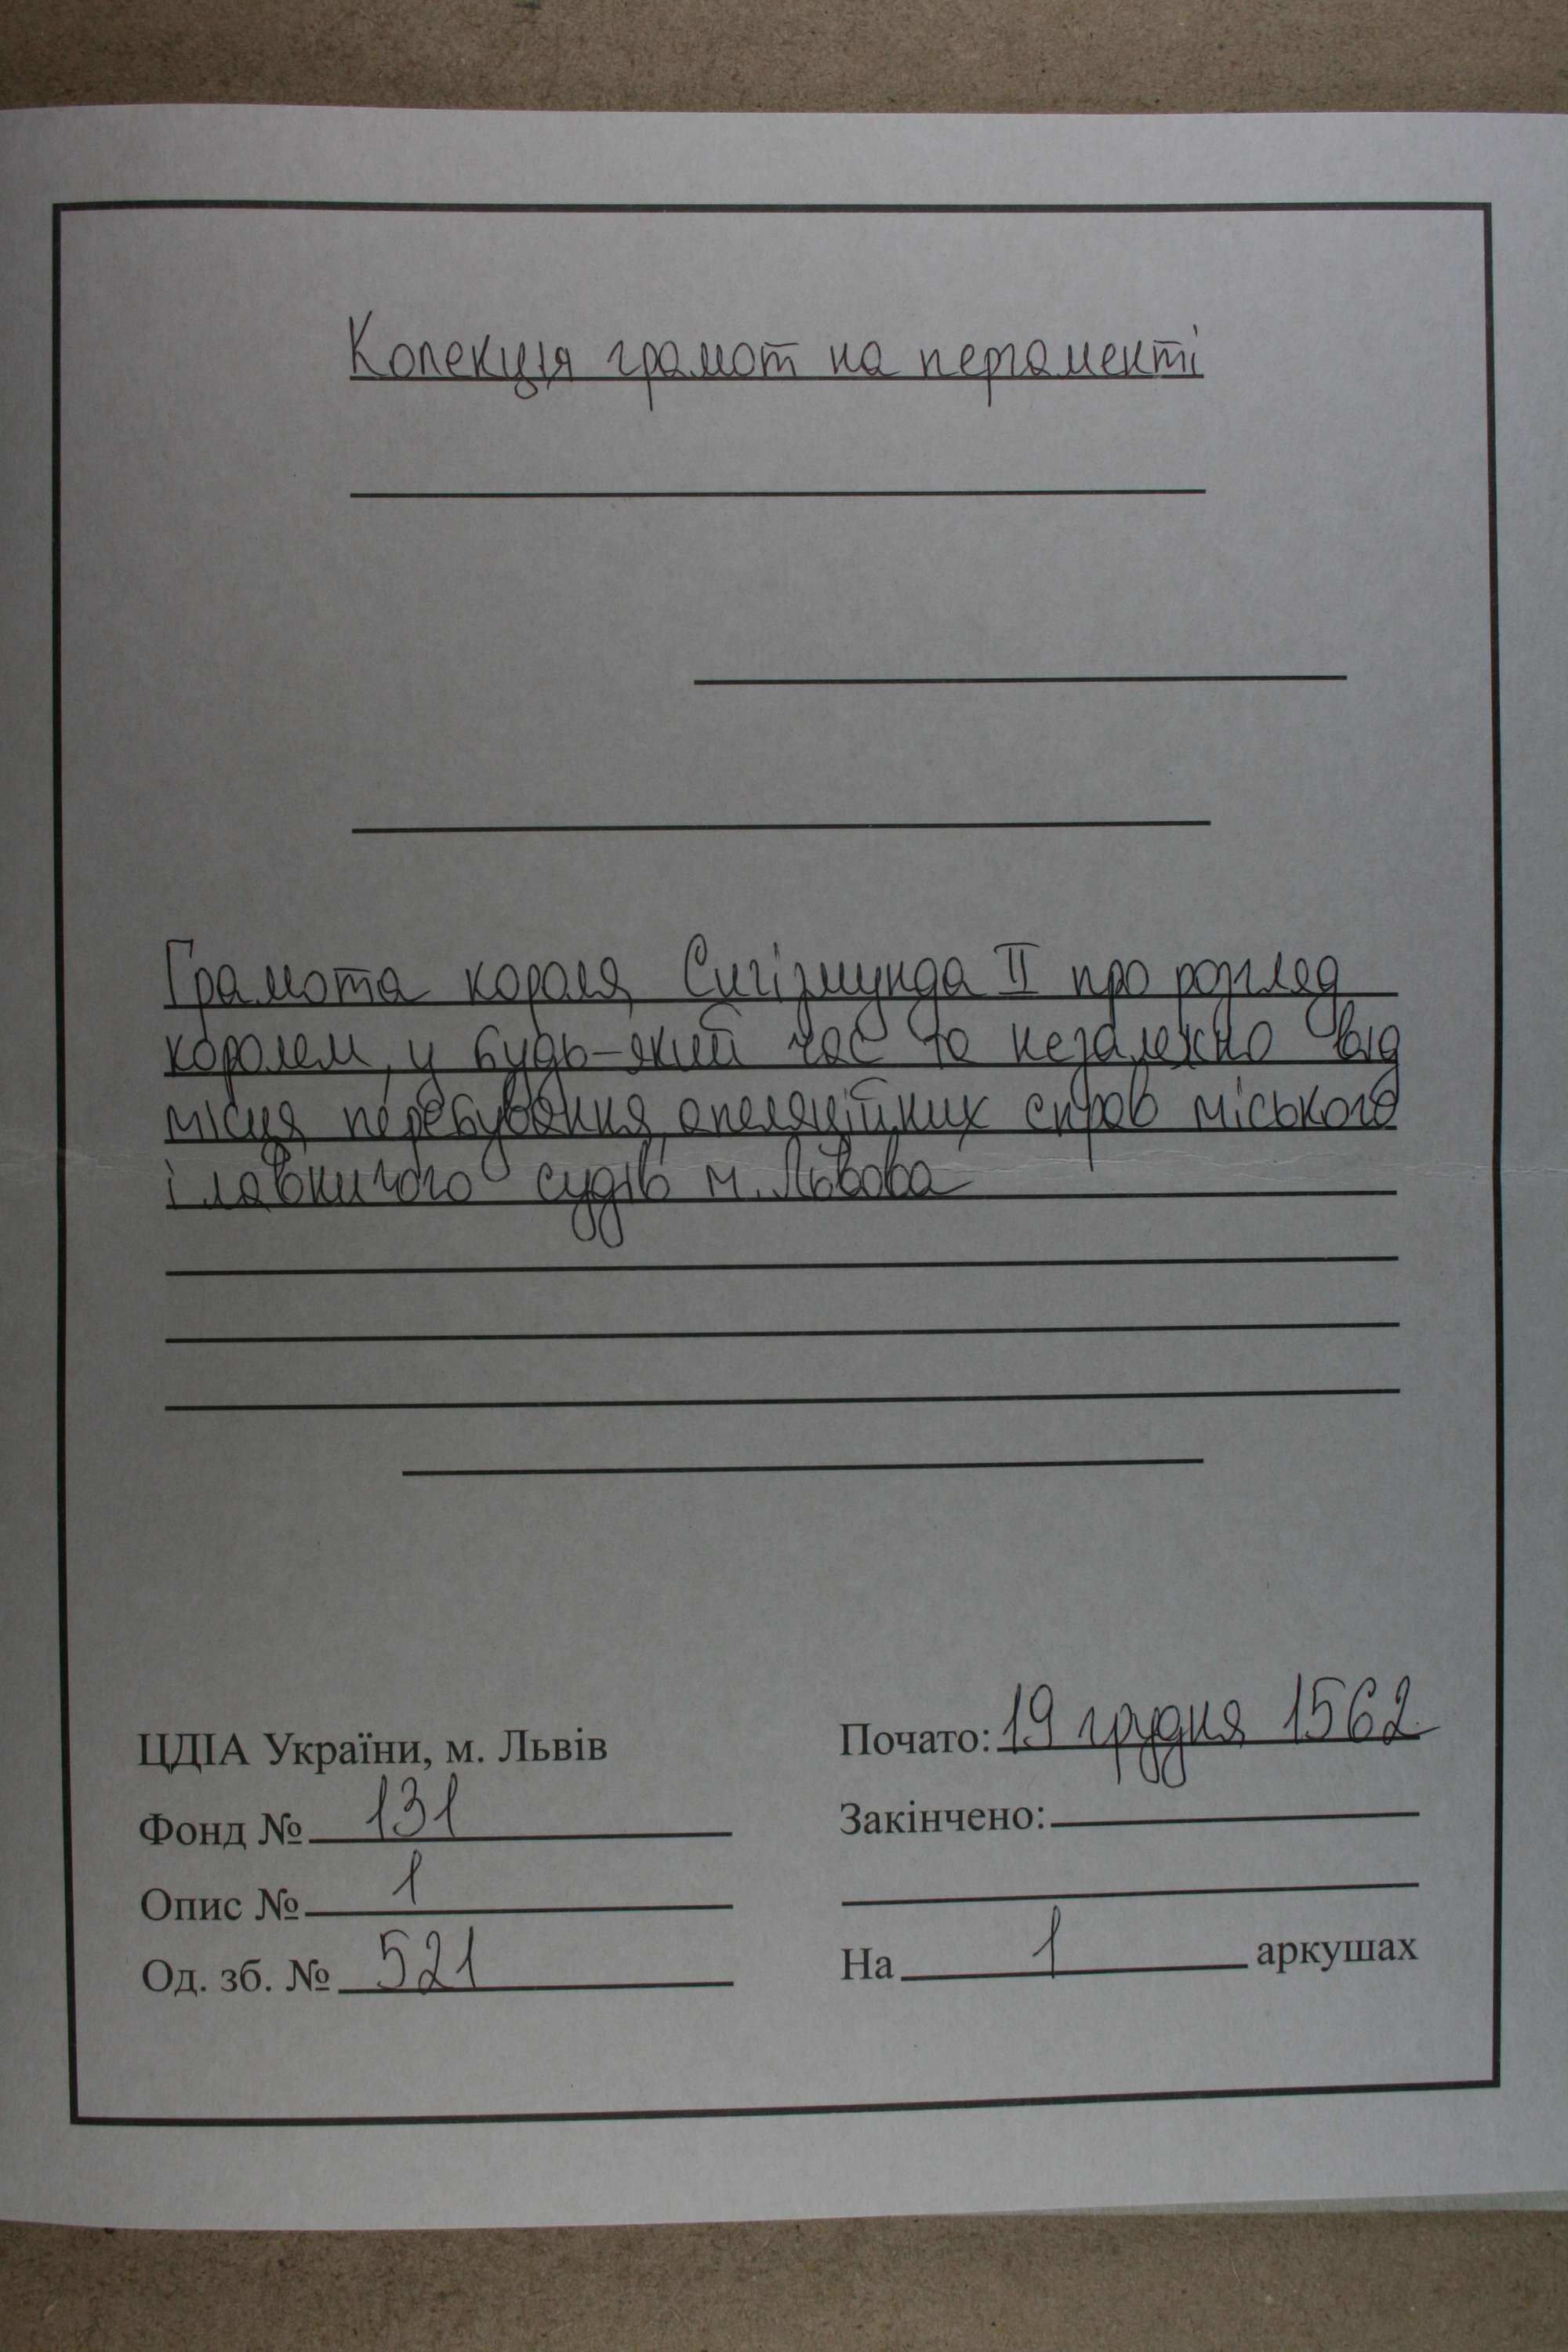 Колекція грамот на пергаменті
Грамота короля Сигізмунда II про розгляд
королем, у будь-який час та незалежно від
місця перебування, апеляційних справ міського
і лавничого судів м. Львова
ЦДІА України, м. Львів
Фонд № 131
Опис № 1
Од. зб. № 521
Почато: 19 грудня 1562
Закінчено:
На 1 аркушах